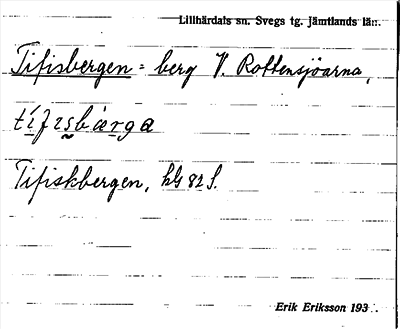 Lillhärdals sn. Svegs tg. Jämtlands lä:.
Tifisbergen = berg V. Rottensjöarna,
tifisbærga
Tifiskbergen, kG 82 S.
Erik Eriksson 193 .